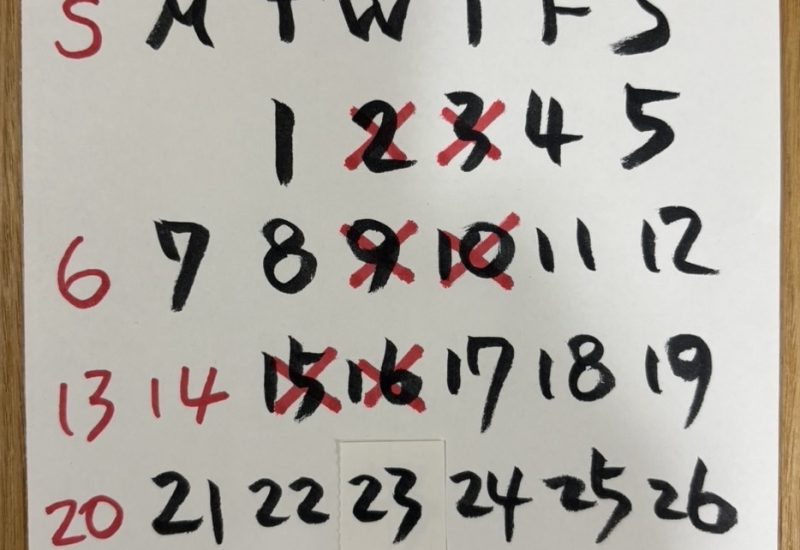 S M T W T F S
1 2 3 4 5
6 7 8 9 10 11 12
13 14 15 16 17 18 19
20 21 22 23 24 25 26